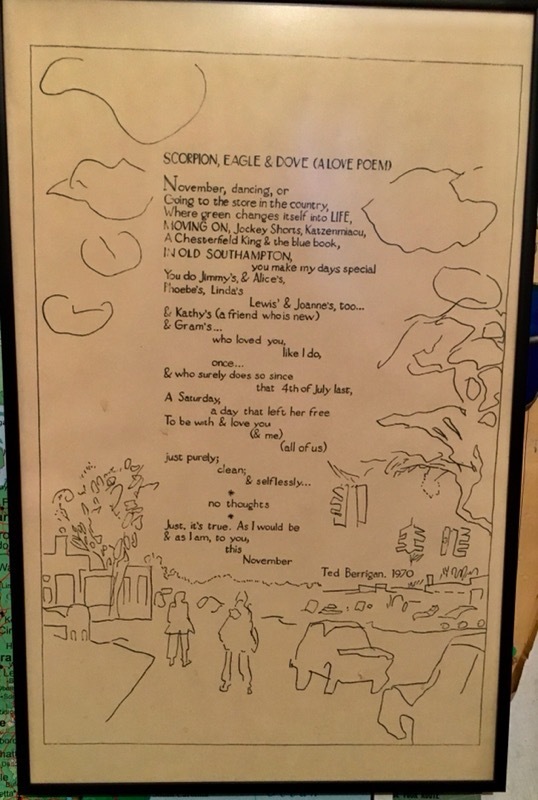 SCORPION, EAGLE & DOVE (A LOVE POEM)
November, dancing, or
Going to the store in the country,
Where green changes itself into LIFE,
MOVING ON, Jockey Shorts, Katzenmiaou,
A Chesterfield King & the blue book,
IN OLD SOUTHAMPTON,
you make my days special
You do Jimmy's, & Alice's,
Phoebe's, Linda's
Lewis' & Joanne's, too...
& Kathy's (a friend who is new)
& Gram's...
who loved you,
like I do,
once...
& who surely does so since
that 4th of July last,
A Saturday,
a day that left her free
To be with & love you
(& me)
(all of us)
just purely;
clean;
& selflessly...
*
no thoughts
*
Just, it's true. As I would be
& as I am, to you,
this
November
Ted Berrigan. 1970